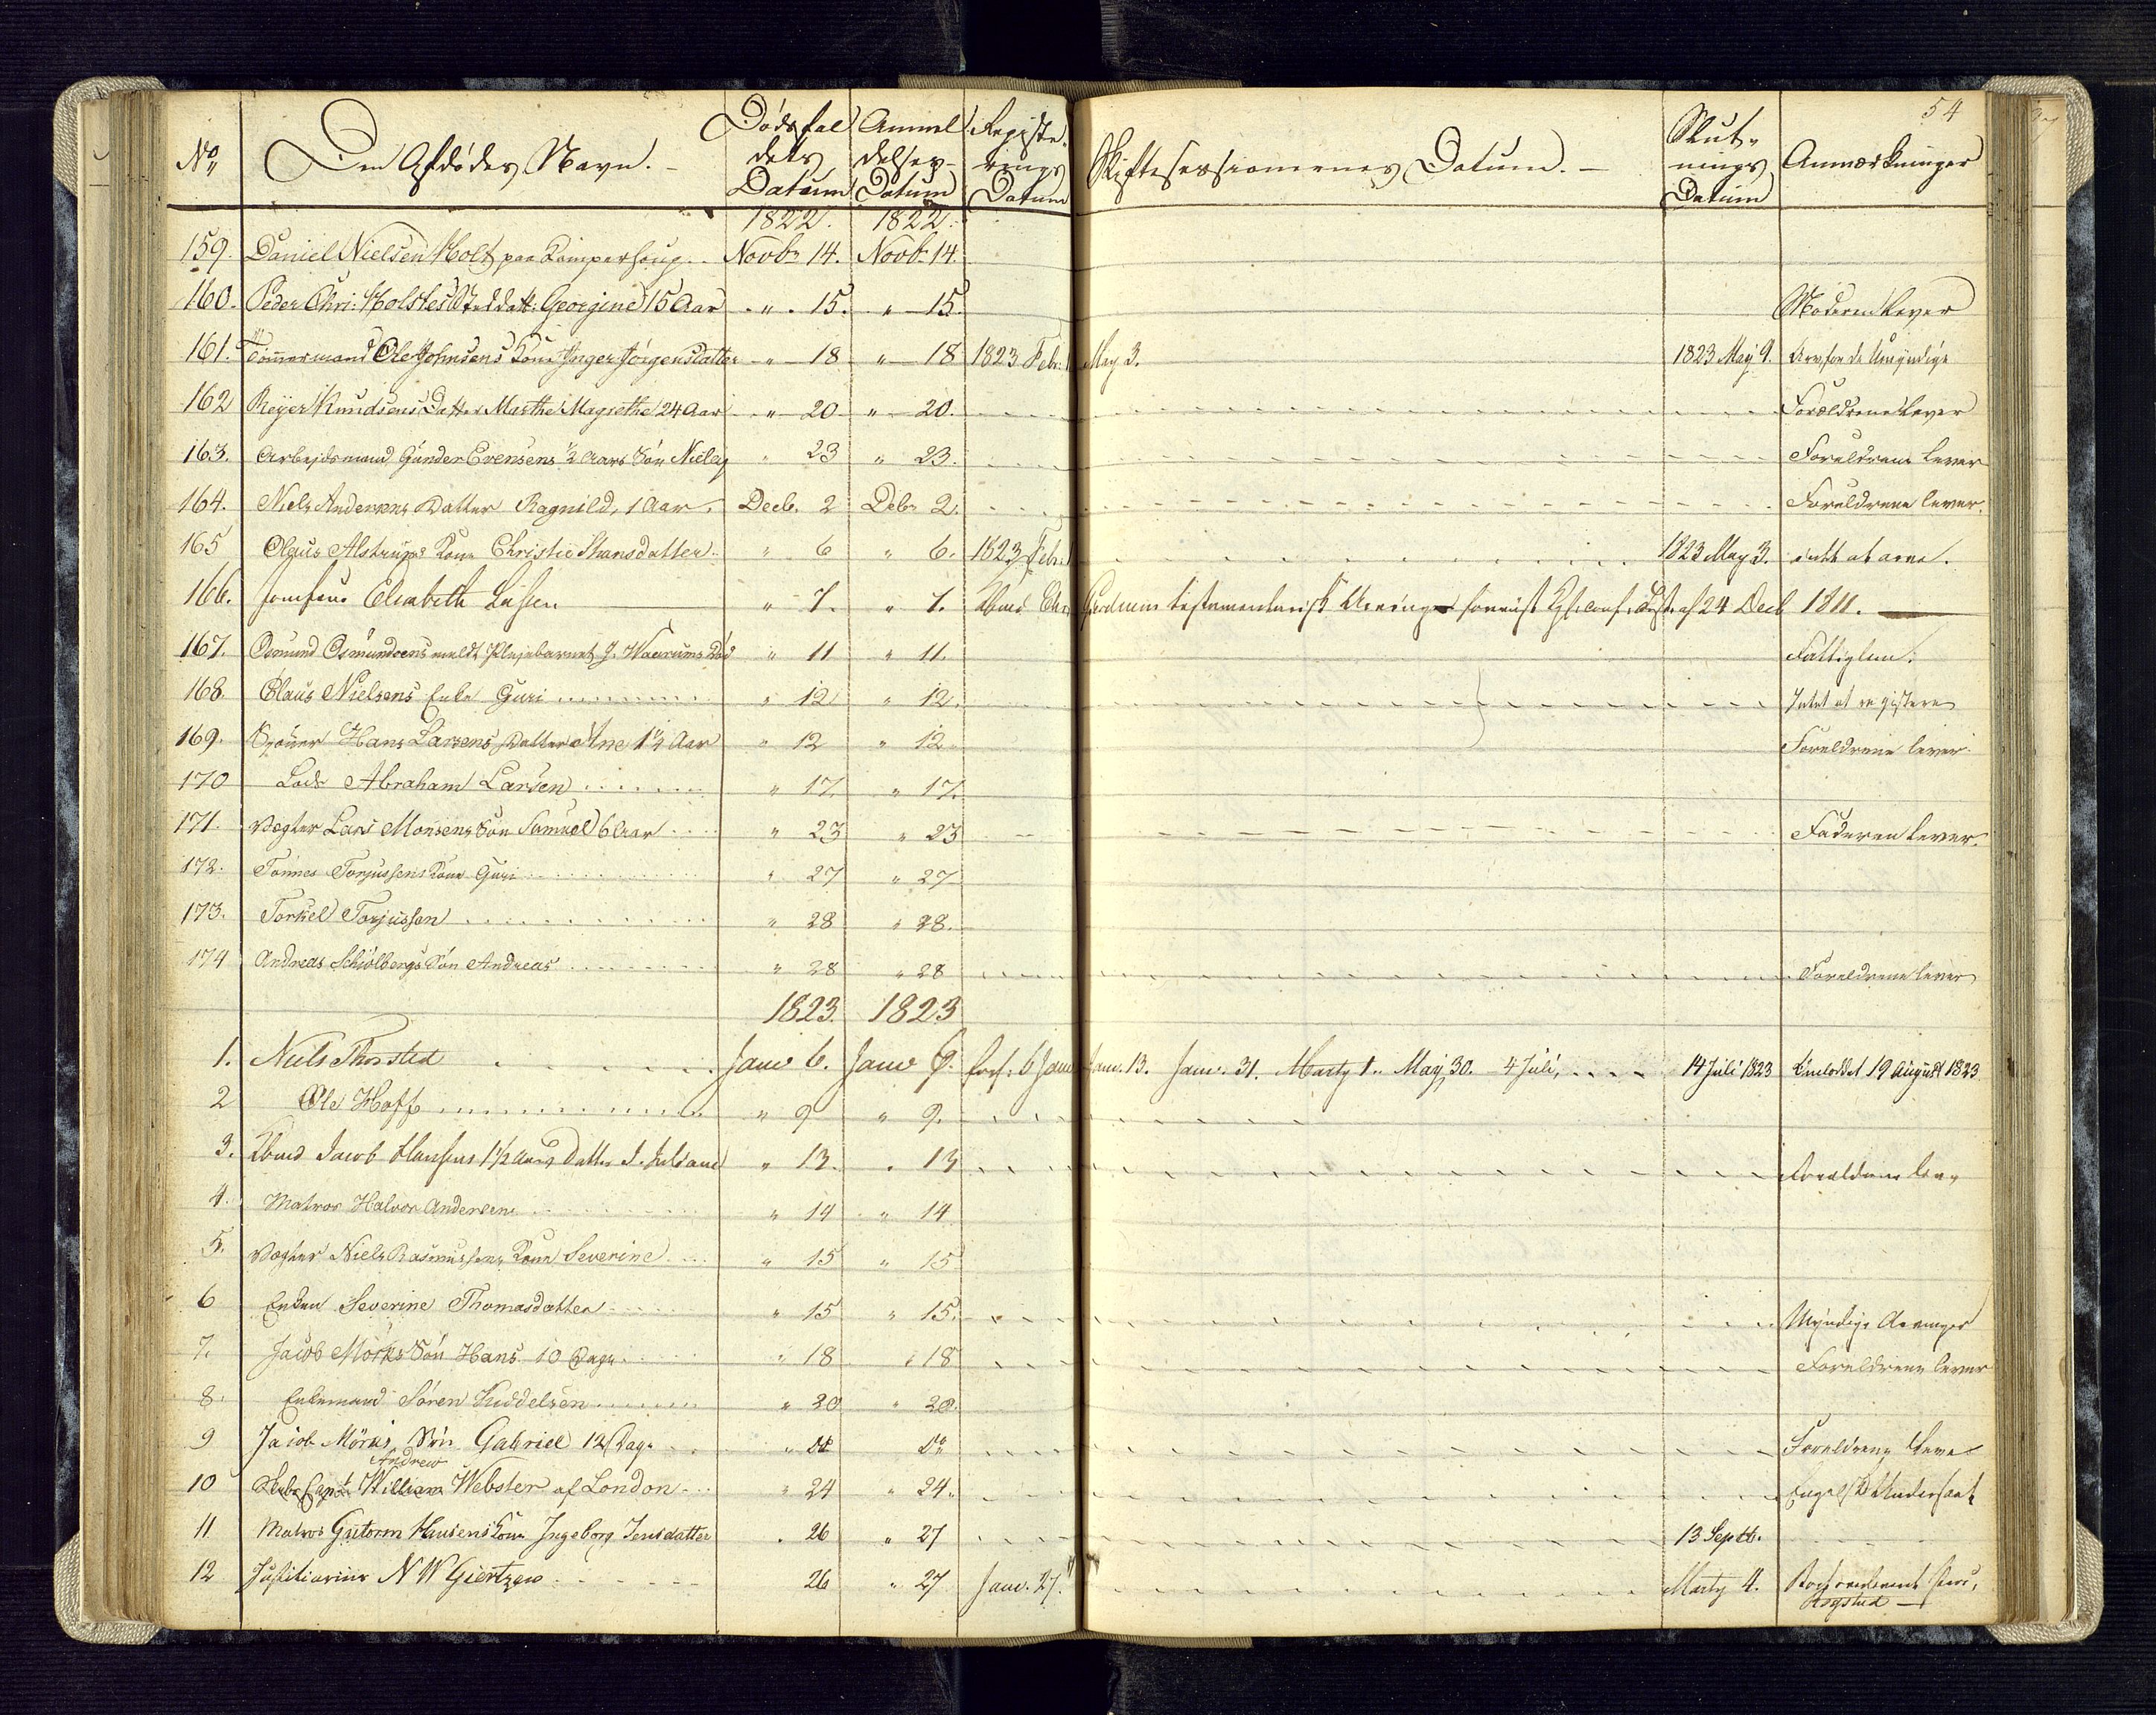 54
No Den Afdødes Navn. Dødsfaldets Datum Anmeldelses Datum Registerings Datum Skiftesessionernes Datum. Slutnings Datum Anmærkninger
1822. 1822.
159. Daniel Nielsen Holt paa Novbr 14. Novbr 14.
160. Peder Chri: Holstes Steddatt: Georgine 15 Aar " 15. " 15. Moderen Lever
161. Tømmermand Ole Johnsens Kone Inger Jørgensdatter " 18 " 18 1823 Febr. May 3. 1823 Maÿ 9. Arv for de Umyndige
162 Reÿer Knudsens Datter Marthe Magrethe 24 Aar " 20 " 20. Forældrene Lever
163. Arbejdsmand Gunder Evensens 1/2 Aars Søn Nielas " 23 " 23. Forældrene lever
164. Niels Andersens Datter Ragnild, 1 Aar. Decb. 2 Debr 2. Forældrene lever.
165 Olaus Alstrups Kone Christie Hansdatter " 6 " 6. 1823 Febr. 1823 May 3. intet at arve.
166. Jomfrue Elisabeth Lassen " 7. " 7. testamentarisk af 24 Decb 1811.
167. Osmund Osmundsens meldt Plejebarnet J. Waarums Død " 11 " 11. Fattiglem.
168. Olaus Nielsens Enke Guri " 12 " 12. Intet at registere
169. Hans Larsens Datter Ane 1 1/2 Aar " 12 " 12 Forældrene lever
170 Lods Abraham Larsen " 17. " 17.
171. Vægter Lars Monsens Søn Samuel 6 Aar " 23 " 23 Faderen lever.
172. Tønnes Torjussens Kone Guri " 27 " 27
173. Torkel Torjussen " 28 " 28.
174 Andreas Schiølbergs Søn Andreas " 28 " 28 Forældrene lever
1823. 1823
1. Niels Thorsted Janv 6. Janv 6. 6 Janv Janv. 13. Janv. 31. Marty 1. Maÿ 30. 4 Juli, 14 Juli 1823 19 August 1823
2 Ole Hoff " 9 " 9.
3. Kbmd Jacob Hansens 1 1/2 Aars Datter J. Juliane " 13. " 13 Forældrene lever
4. Matros Halvor Andersen " 14 " 14
5. Vægter Niels Rasmussens Kone Severine " 15 " 15
6 Enken Severine Thomasdatter " 15 " 15. Myndige Arvinger
7. Jacob Mørks Søn Hans 10 Dage " 18 " 18 Forældrene lever
8. Enkemand Søren Kiddelsen " 20 " 20.
9 Jacob Mørks Søn Gabriel 12 Dage " Do Do Forældrene Leve
Andrew
10 Skibs Capt William Webster af London " 24 " 24. Engelsk Undersaat
11 Matros Gutorm Hansens Kone Ingeborg Jensdatter " 26 " 27 13 Septb.
12 Justitiarius N W Giertzen 26 " 27 Janv. 27. Marty 4.